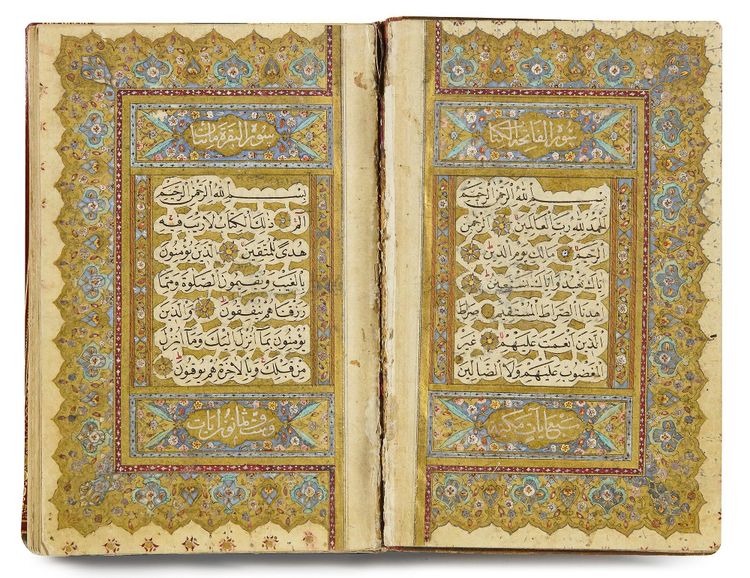 سورة الفاتحة الكتاب
بسم الله الرحمن الرحيم
الحمد لله رب العالمين الرحمن
الرحيم مالك يوم الدين
اياك نعبد واياك نستعين
اهدنا الصراط المستقيم صراط
الذين انعمت عليهم غير
المغضوب عليهم ولا الضالين
سبع آيات مكية
سورة البقرة مائتان
بسم الله الرحمن الرحيم
الم ذلك الكتاب لا ريب فيه
هدى للمتقين الذين يؤمنون
بالغيب ويقيمون الصلوة ومما
رزقناهم ينفقون والذين
يؤمنون بما انزل اليك وما انزل
من قبلك وبالاخرة هم يوقنون
وست وثمانون آيات